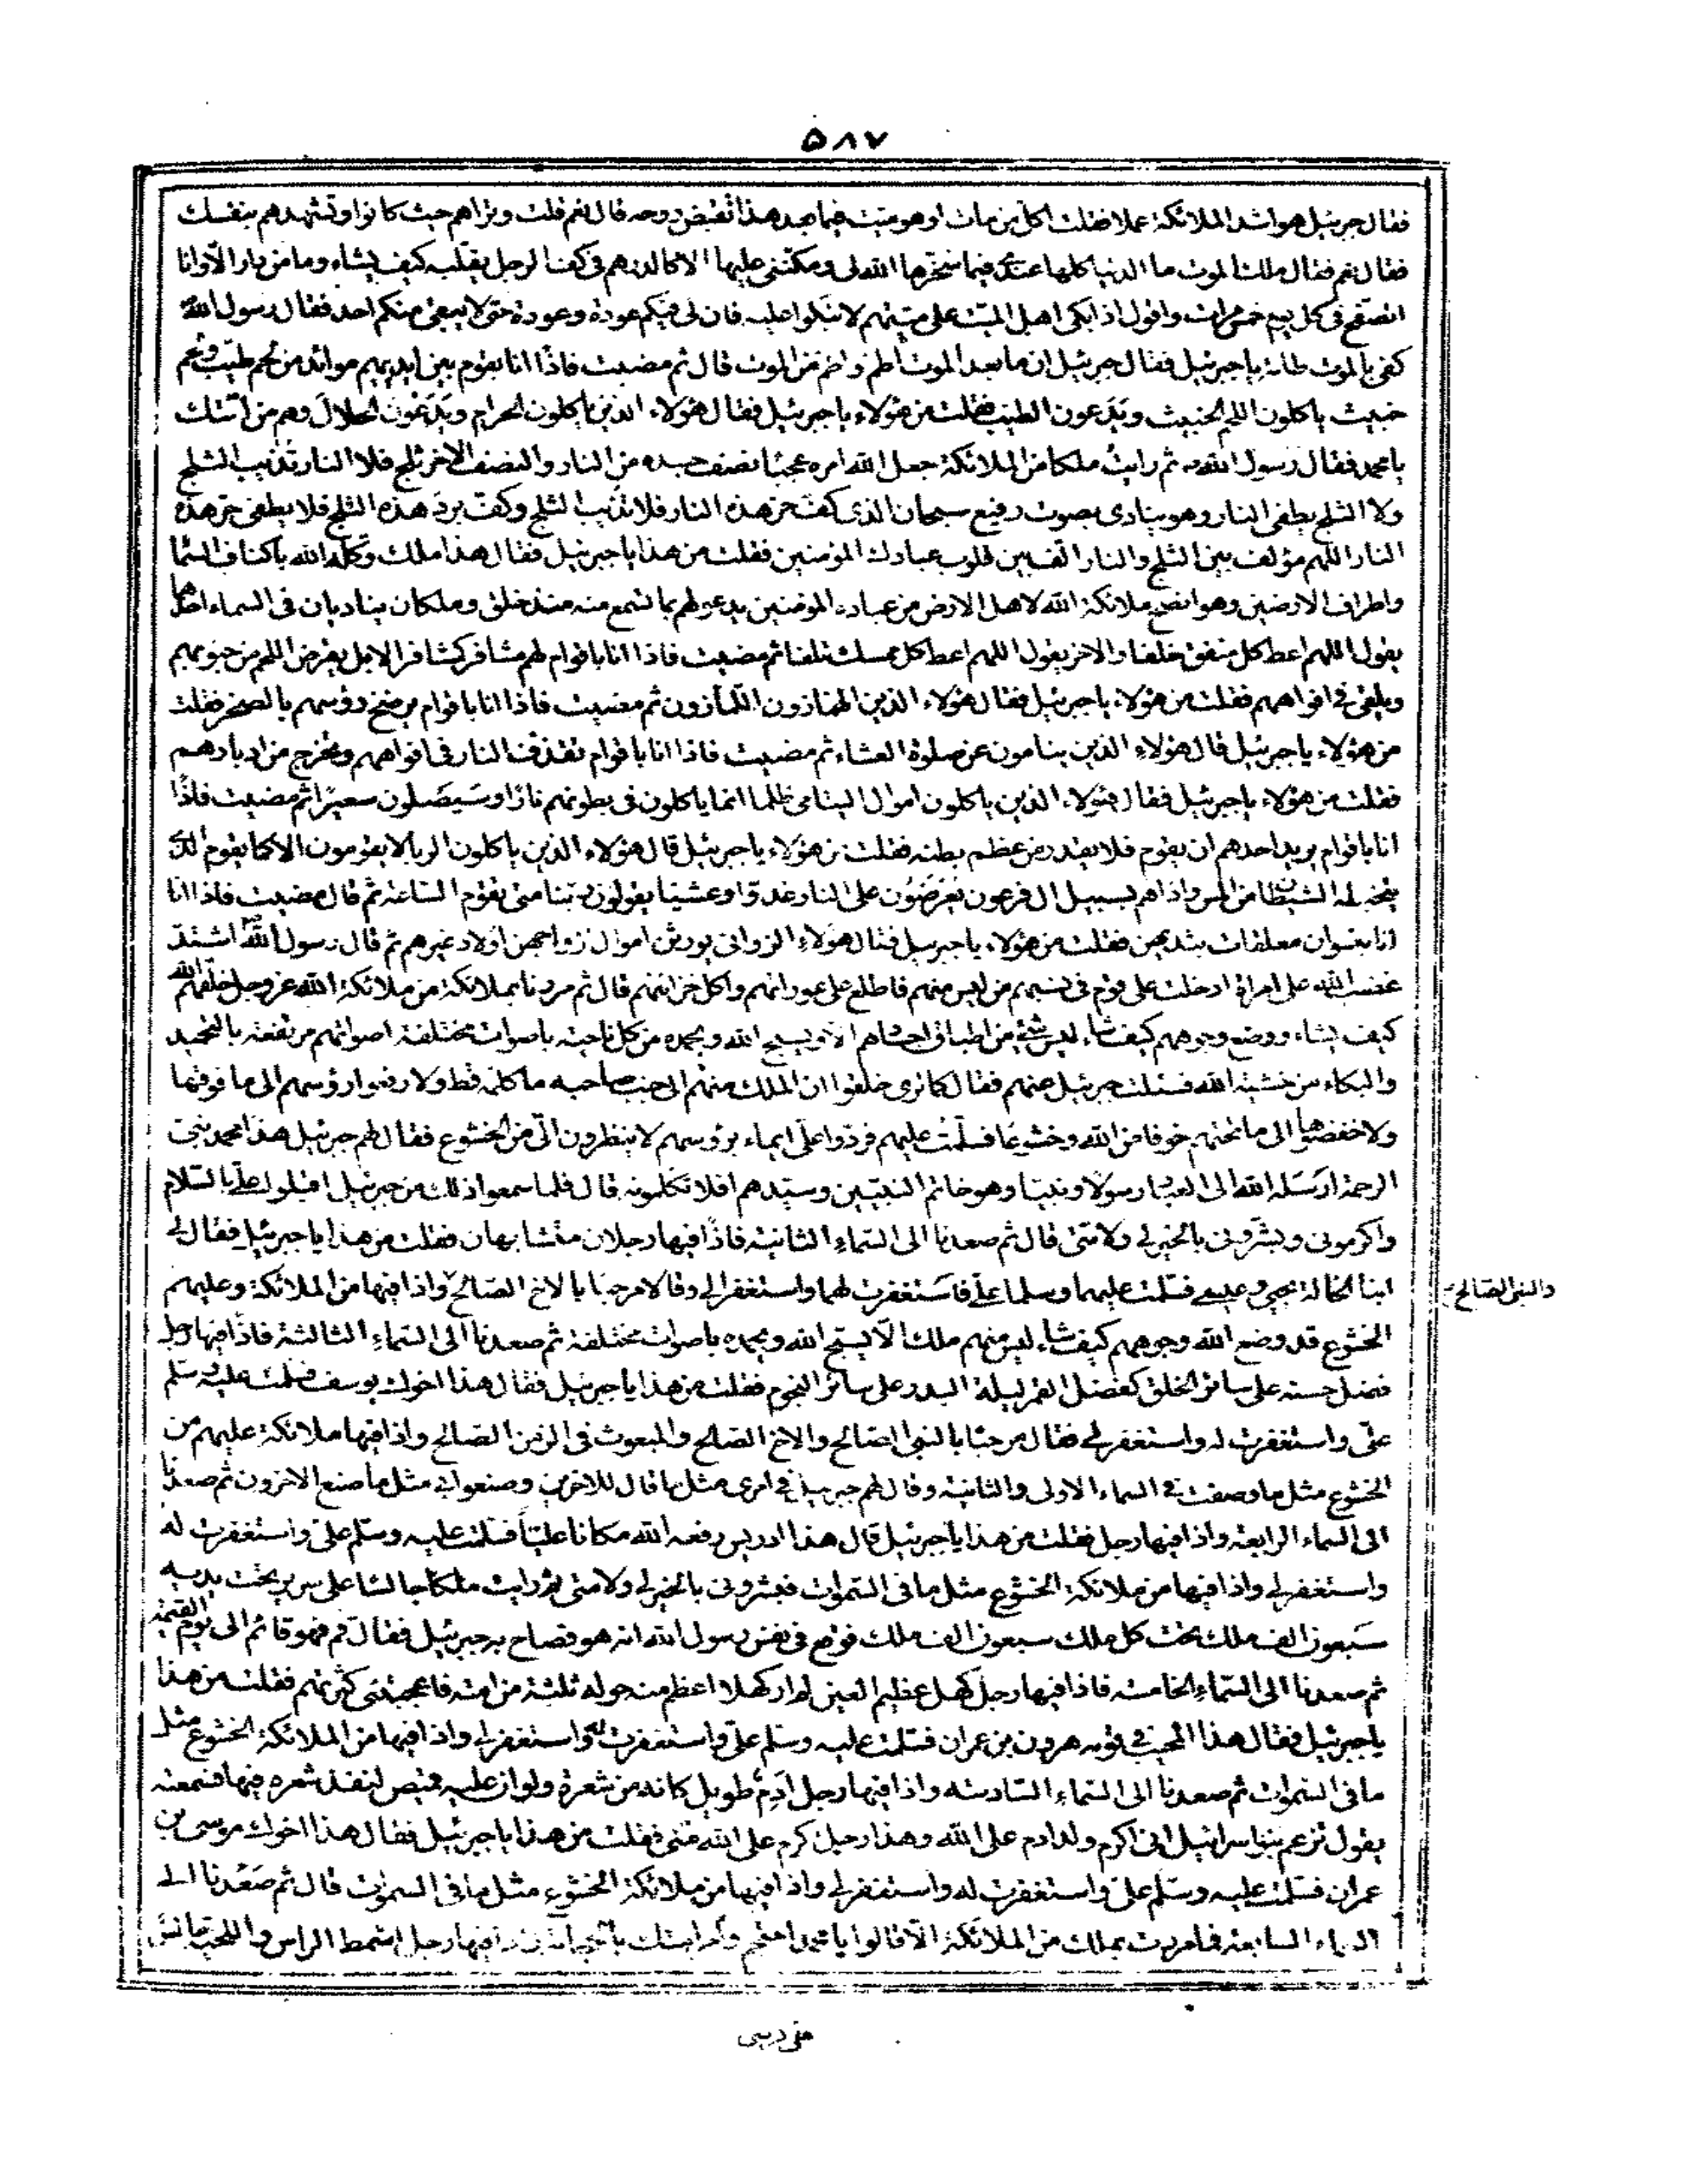 ٥٨٧
فقال جبرئيل هو اشد الملائكة عملا فقلت اكل من مات او هو ميت فيما بعد هذا تقبض روحه قال نعم قلت وتراهم حيث كانوا وتشهدهم بنفسك
فقال نعم فقال ملك الموت ما الدنيا كلها عندى فيما سخرها الله لى ومكننى عليها الا كالدرهم فى كف الرجل يقلبه كيف يشاء وما من دار الا وانا
اتصفح فى كل يوم خمس مرات واقول اذا بكى اهل الميت على ميتهم لا تبكوا عليه فان لى فيكم عودة وعودة حتى لا يبقى منكم احد فقال رسول الله
كفى بالموت طامة يا جبرئيل فقال جبرئيل ان ما بعد الموت اطم واطم من الموت قال ثم مضيت فاذا انا بقوم بين ايديهم موائد من لحم طيب ولحم
خبيث ياكلون اللحم الخبيث ويدعون الطيب فقلت من هؤلاء يا جبرئيل فقال هؤلاء الذين ياكلون الحرام ويدعون الحلال وهم من امتك
يا محمد فقال رسول الله ثم رايت ملكا من الملائكة جعل الله امره عجبا نصف جسده من النار والنصف الاخر ثلج فلا النار تذيب الثلج
ولا الثلج يطفى النار وهو ينادى بصوت رفيع سبحان الذى كف حر هذه النار فلا تذيب الثلج وكف برد هذه الثلج فلا يطفى حر هذه
النار اللهم مؤلف بين الثلج والنار الف بين قلوب عبادك المؤمنين فقلت من هذا يا جبرئيل فقال هذا ملك وكله الله باكناف السما
واطراف الارضين وهو انصح ملائكة الله لاهل الارض من عباده المؤمنين يدعو لهم بما تسمع منه منذ خلق وملكان يناديان فى السماء احدهما
يقول اللهم اعط كل منفق خلفا والاخر يقول اللهم اعط كل ممسك تلفا ثم مضيت فاذا انا باقوام لهم مشافر كمشافر الابل يقرض اللحم من جنوبهم
ويلقى فى افواههم فقلت من هؤلاء يا جبرئيل فقال هؤلاء الذين الهمازون اللمازون ثم مضيت فاذا انا باقوام يرضخ رؤسهم بالصخر فقلت
من هؤلاء يا جبرئيل قال هؤلاء الذين ينامون عن صلوة العشاء ثم مضيت فاذا انا باقوام تقذف النار فى افواههم وتخرج من ادبارهم
فقلت من هؤلاء يا جبرئيل فقال هؤلاء الذين ياكلون اموال اليتامى ظلما انما ياكلون فى بطونهم نارا وسيصلون سعيرا ثم مضيت فاذا
انا باقوام يريد احدهم ان يقوم فلا يقدر من عظم بطنه فقلت من هؤلاء يا جبرئيل قال هؤلاء الذين ياكلون الربا لا يقومون الا كما يقوم الذى
يتخبطه الشيطان من المس واذا هم بسبيل ال فرعون يعرضون على النار غدوا وعشيا يقولون ربنا متى تقوم الساعة ثم قال مضيت فاذا انا
انا بنسوان معلقات بثديهن فقلت من هؤلاء يا جبرئيل فقال هؤلاء الزوانى يورثن اموال ازواجهن اولاد غيرهم ثم قال رسول الله اشتد
غضب الله على امراة ادخلت على قوم فى نسبهم من ليس منهم فاطلع على عوراتهم واكل خزائنهم قال ثم مررنا بملائكة من ملائكة الله عز وجل خلقهم الله
كيف يشاء ووضع وجوههم كيف شاء ليس شئ من اطباق اجسادهم الا ويسبح الله وبحمده من كل ناحية باصوات مختلفة اصواتهم مرتفعة بالتحميد
والبكاء من خشية الله فسئلت جبرئيل عنهم فقال كما ترى خلقوا ان الملك منهم الى جنب صاحبه ما كلمه قط ولا رفعوا رؤسهم الى ما فوقها
ولا خفضوها الى ما تحتهم خوفا من الله وخشوعا فسلمت عليهم فردوا على ايماء برؤسهم لا ينظرون الى من الخشوع فقال لهم جبرئيل هذا محمد نبى
الرحمة ارسله الله الى العباد رسولا ونبيا وهو خاتم النبيين وسيدهم افلا تكلمونه قال فلما سمعوا ذلك من جبرئيل اقبلوا على بالسلام
واكرمونى وبشرونى بالخير لى ولامتى قال ثم صعدنا الى السماء الثانية فاذا فيها رجلان متشابهان فقلت من هذا يا جبرئيل فقال لى
ابنا الخالة يحيى وعيسى فسلمت عليهما وسلما على فاستغفرت لهما واستغفرا لى وقالا مرحبا بالاخ الصالح واذا فيها من الملائكة وعليهم
والنبى الصالح
الخشوع قد وضع الله وجوههم كيف شاء ليس منهم ملك الا يسبح الله وبحمده باصوات مختلفة ثم صعدنا الى السماء الثالثة فاذا فيها رجل
فضل حسنه على سائر الخلق كفضل القمر ليلة البدر على سائر النجوم فقلت من هذا يا جبرئيل فقال هذا اخوك يوسف فسلمت عليه وسلم
على واستغفرت له واستغفر لى فقال مرحبا بالنبى الصالح والاخ الصالح والمبعوث فى الزمن الصالح واذا فيها ملائكة عليهم من
الخشوع مثل ما وصفت فى السماء الاولى والثانية وقال لهم جبرئيل فى امرى مثل ما قال للاخرين وصنعوا بى مثل ما صنع الاخرون ثم صعدنا
الى السماء الرابعة واذا فيها رجل فقلت من هذا يا جبرئيل قال هذا ادريس رفعه الله مكانا عليا فسلمت عليه وسلم على واستغفرت له
واستغفر لى واذا فيها من ملائكة الخشوع مثل ما فى السموات فبشرونى بالخير لى ولامتى ثم رايت ملكا جالسا على سرير تحت يديه
سبعون الف ملك تحت كل ملك سبعون الف ملك فوقع فى نفس رسول الله انه هو فصاح به جبرئيل فقال قم فهو قائم الى يوم القيمة
ثم صعدنا الى السماء الخامسة فاذا فيها رجل كهل عظيم العين لم ار كهلا اعظم منه حوله ثلثة من امته فاعجبتنى كثرتهم فقلت من هذا
يا جبرئيل فقال هذا المحبب فى قومه هرون بن عمران فسلمت عليه وسلم على واستغفرت له واستغفر لى واذا فيها من الملائكة الخشوع مثل
ما فى السموات ثم صعدنا الى السماء السادسة واذا فيها رجل ادم طويل كانه من شعرة ولو ان عليه قميص لنفذ شعره فيها فسمعته
يقول تزعم بنو اسرائيل انى اكرم ولد ادم على الله وهذا رجل اكرم على الله منى فقلت من هذا يا جبرئيل فقال هذا اخوك موسى بن
عمران فسلمت عليه وسلم على واستغفرت له واستغفر لى واذا فيها من ملائكة الخشوع مثل ما فى السموات قال ثم صعدنا الى
السماء السابعة فما مررت بملك من الملائكة الا قالوا يا محمد احتجم وأمر امتك بالحجامة واذا فيها رجل اشمط الراس واللحية جالس